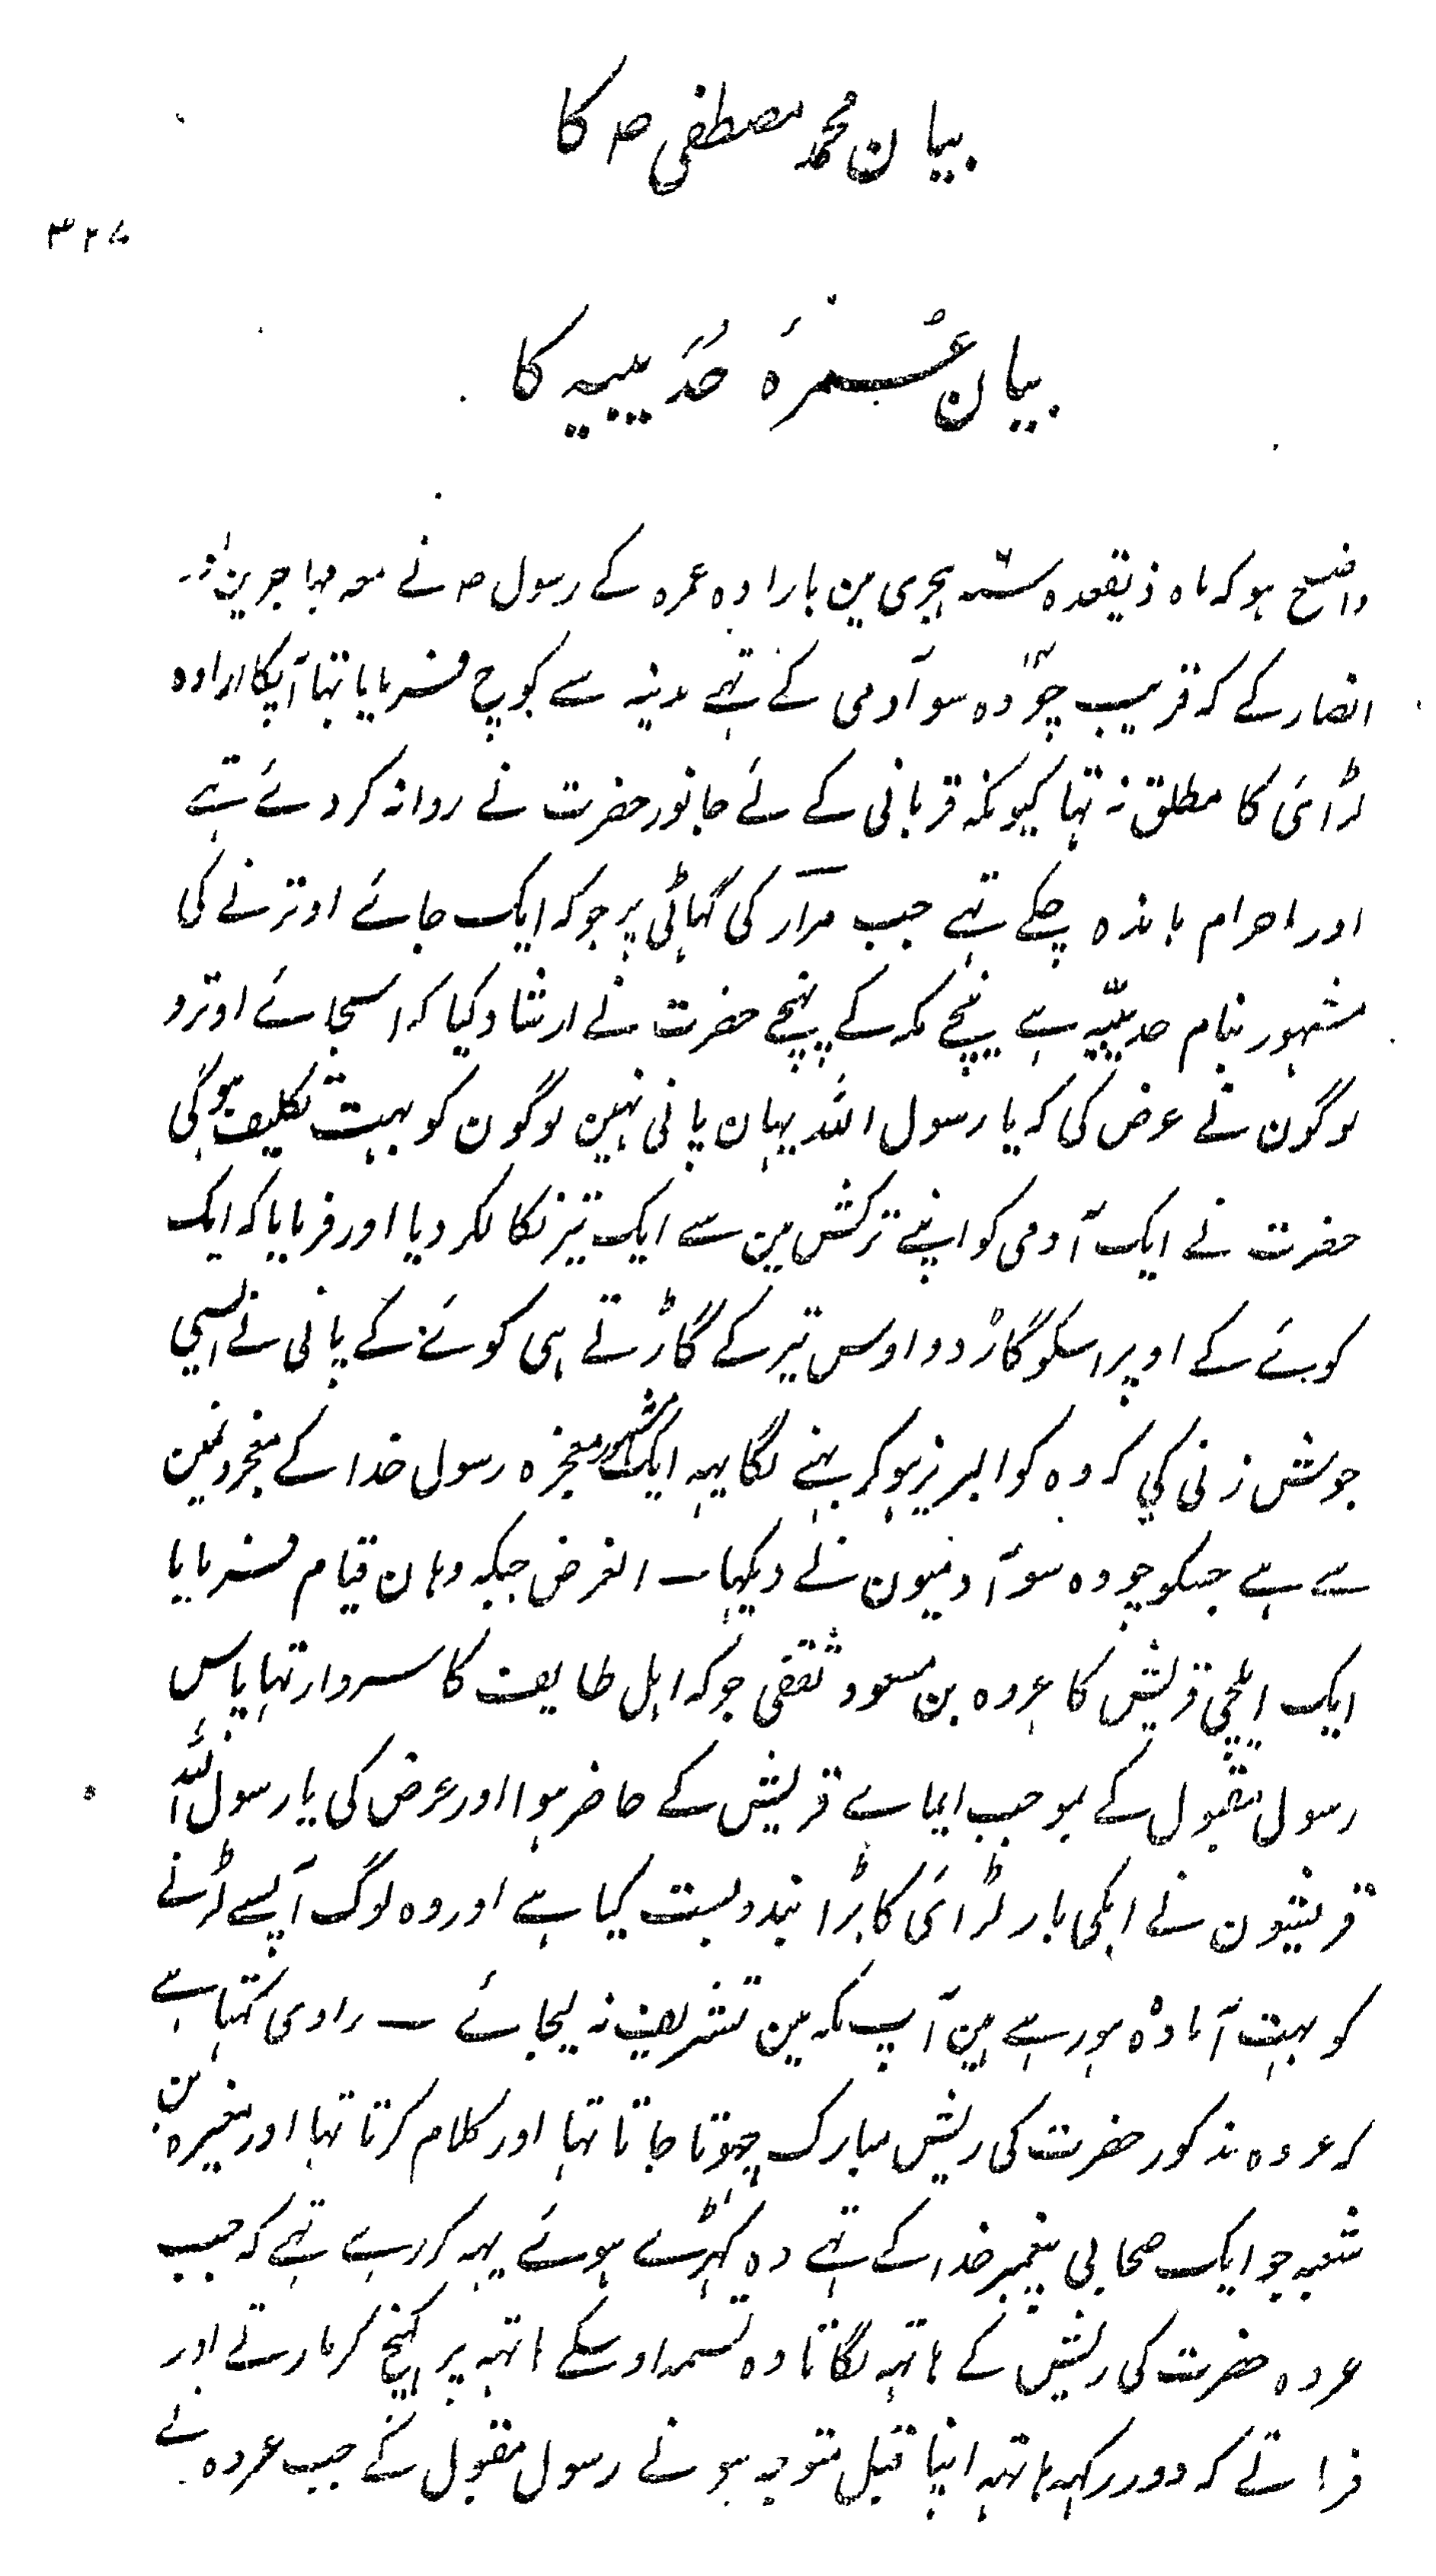 بیان محمد مصطفی ص کا
۳۲۷
بیان عُمْرَۂ حُدَیبیہ کا
واضح ہو کہ ماہ ذیقعدہ سنہ ۶ ہجری مین بارادہ عمرہ کے رسول ص نے معہ مہاجرین و
انصار کے کہ قریب چودہ سو آدمی کے تہے مدینہ سے کوچ فرمایا تہا آپکا ارادہ
لڑائی کا مطلق نہ تہا کیونکہ قربانی کے لئے جانور حضرت نے روانہ کر دئے تہے
اور احرام باندہ چکے تہے جب مرآر کی گہاٹی پر جو کہ ایک جائے اوترنے کی
مشہور بنام حدیبیّہ ہے نیچے مکہ کے پہنچے حضرت نے ارشاد کیا کہ اسجائے اوترو
لوگون نے عرض کی کہ یا رسول اللہ یہان پانی نہین لوگون کو بہت تکلیف ہوگی
حضرت نے ایک آدمی کو اپنے ترکش مین سے ایک تیر نکالکر دیا اور فرمایا کہ ایک
کوئے کے اوپر اسکو گاڑ دو اوس تیر کے گاڑتے ہی کوئے کے پانی نے ایسی
جوش زنی کی کہ وہ کوا لبریز ہو کر بہنے لگا یہہ ایک مشہور معجزہ رسول خدا کے معجزونمین
سے ہے جسکو چودہ سو آدمیون نے دیکہا ـ الغرض جبکہ وہان قیام فرمایا
ایک ایلچی قریش کا عروہ بن مسعود ثقفی جو کہ اہل طایف کا سردار تہا پاس
رسول مقبول کے بموجب ایماے قریش کے حاضر ہوا اور عرض کی یا رسول اللہ
قریشیون نے ابکی بار لڑائی کا بڑا بندوبست کیا ہے اور وہ لوگ آپسے لڑنے
کو بہت آمادہ ہو رہے ہین آپ مکہ مین تشریف نہ لیجائے ـ راوی کہتا ہے
کہ عروہ مذکور حضرت کی ریش مبارک چہوتا جاتا تہا اور کلام کرتا تہا اور مغیرہ بن
شعبہ جو ایک صحابی پیغمبر خدا کے تہے وہ کہڑے ہوئے یہہ کر رہے تہے کہ جب
عروہ حضرت کی ریش کے ہاتہہ لگاتا وہ تسمہ اوسکے ہاتہہ پر کہینچ کر مارتے اور
فرماتے کہ دور رکہہ ہاتہہ اپنا قبل متوجہ ہونے رسول مقبول کے جب عروہ نے